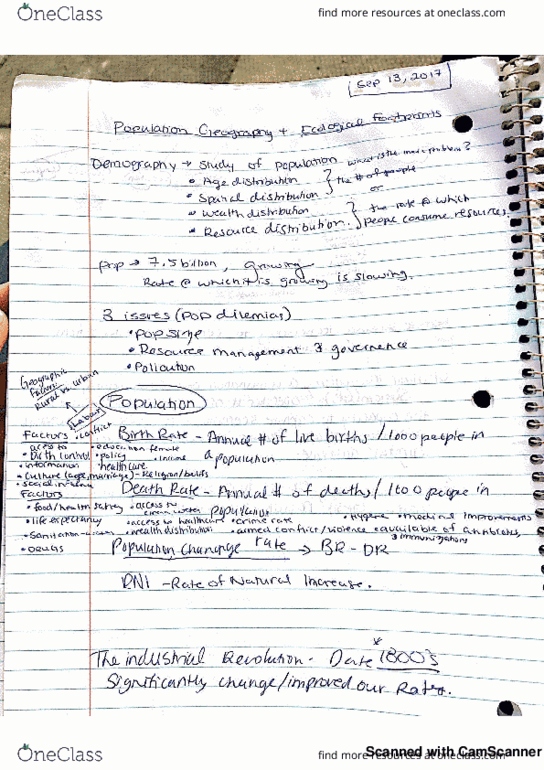 OneClass
find more resources at oneclass.com
Sep 13, 2017
Population Geography + Ecological Footprints
Demography → Study of population what is the main problem?
• Age distribution
• Spatial distribution } the # of people
or
• Wealth distribution
• Resource distribution. } the rate @ which people consume resources.
Pop → 7.5 billion, growing
Rate @ which it is growing is slowing.
3 issues (pop dilemias)
• pop size
• Resource management & governence
• Pollution
Geographic
Factors
Rural vs urban
Labour
Population
Factors • conflict
Birth Rate - Annual # of live births / 1000 people in
a population
• access to
birth control
• education female
• policy
• income
• information
healthcare
• culture (age, marriage) - Religion/beliefs
Factors
Death Rate - Annual # of deaths / 1000 people in
population
• food/health safety
• access to
clean water
• hygiene • medical improvements
• life expectancy
• access to healthcare • crime rate
• wealth distribution • armed conflict/violence • available of antibiotics,
& immunizations
• Drugs
Population chanange rate → BR - DR
RNI - Rate of Natural Increase.
The industrial Revolution - Date * 1800's
Significantly change/improved our Rates.
OneClass
find more resources at oneclass.com
Scanned with CamScanner